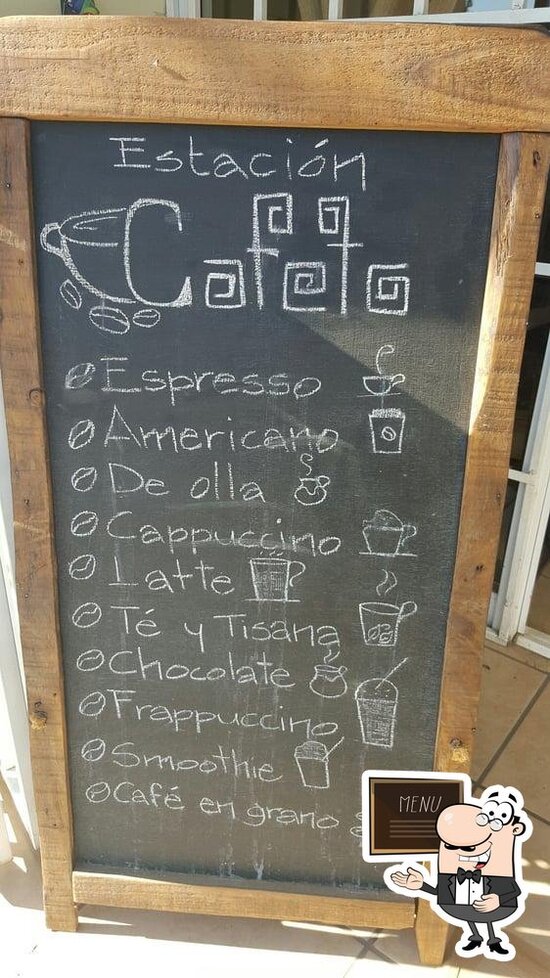 Estación
Cafeto
Espresso
Americano
De olla
Cappuccino
Latte
Té y Tisana
Chocolate
Frappuccino
Smoothie
Café en grano
MENU